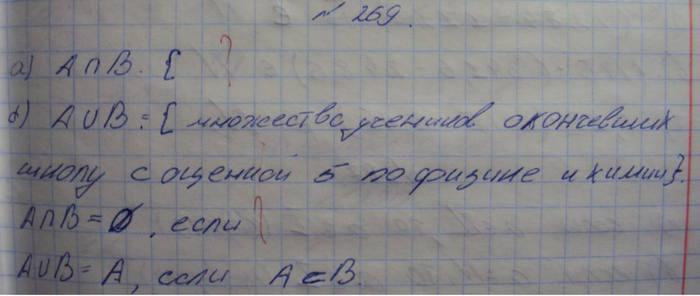 № 269.
а) A∩B. {
б) A∪B = { множество учеников окончевших
школу с оценкой 5 по физике и химии}.
A∩B = ∅, если
A∪B = A, если A⊂B.